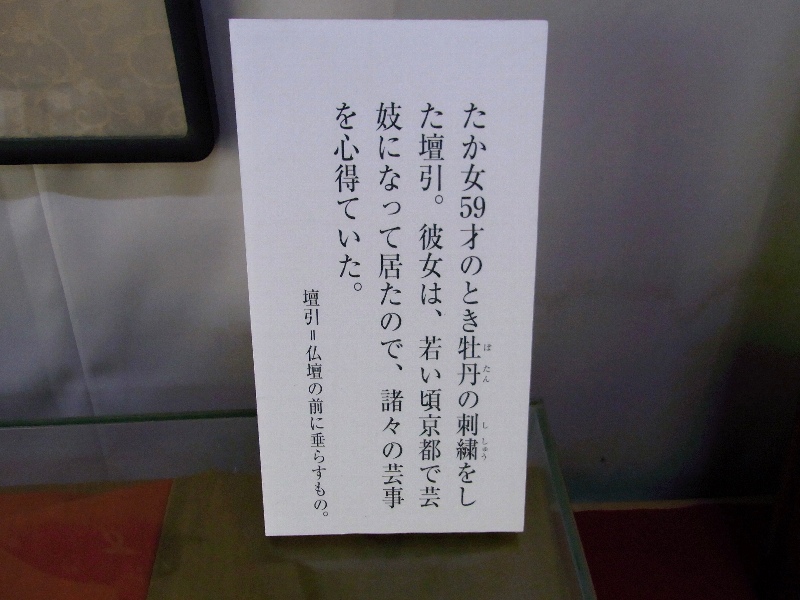 たか女59才のとき牡丹の刺繍をし
た壇引。彼女は、若い頃京都で芸
妓になって居たので、諸々の芸事
を心得ていた。
壇引＝仏壇の前に垂らすもの。